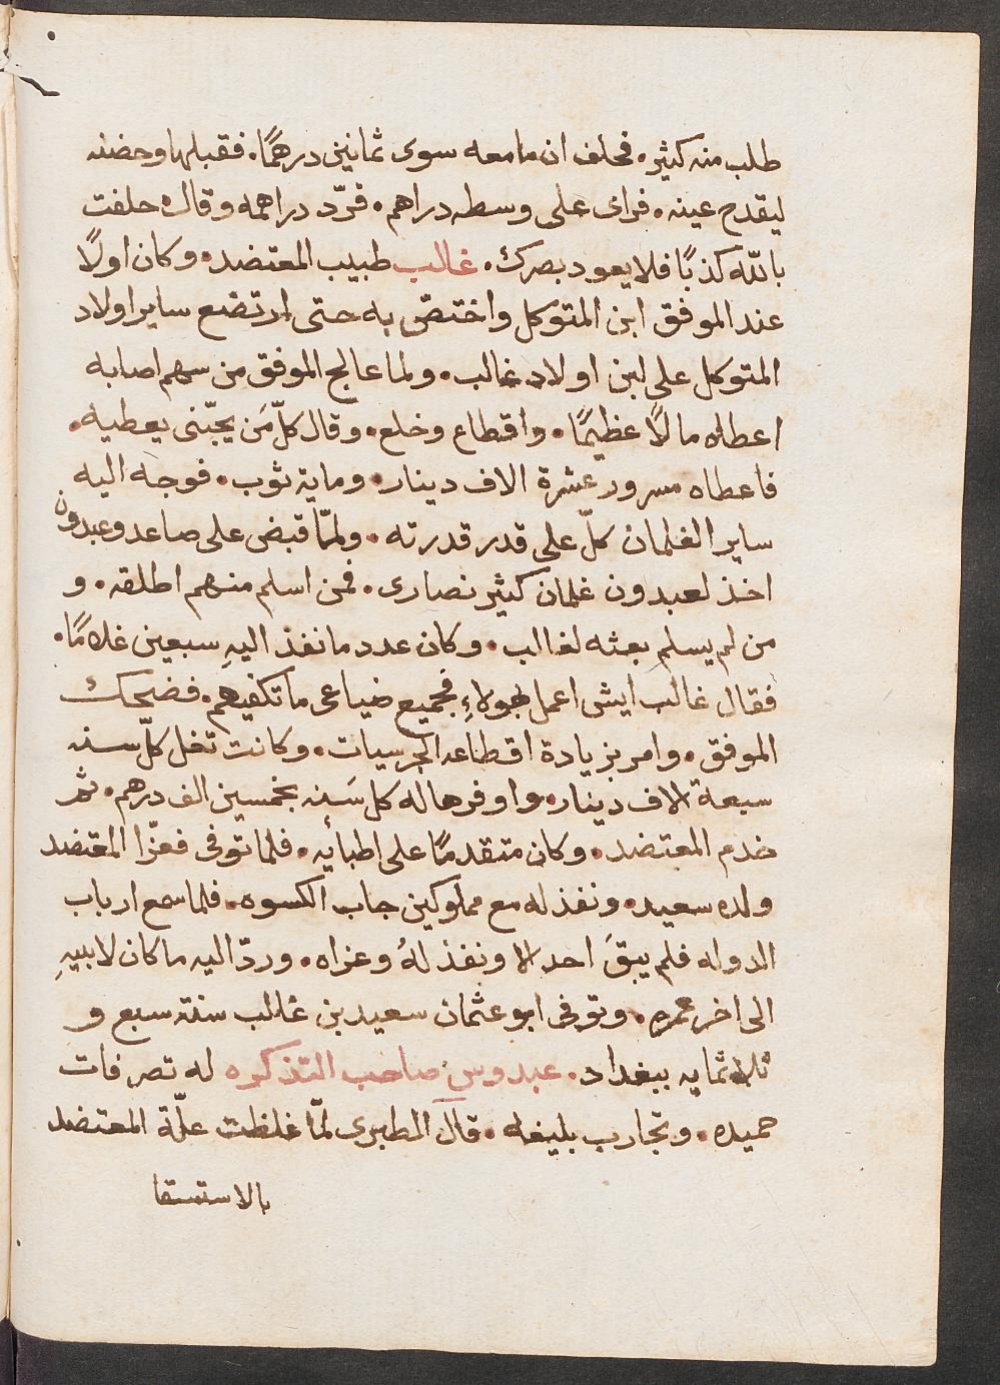 طلب منه كثير • فحلف ان ما معه سوى ثمانين درهمًا • فقبلها وحضنه
ليقدح عينه • فراى على وسطه دراهم • فردّ دراهمه وقال • حلفت
بالله كذبًا فلا يعود بصرك • غالب طبيب المعتضد • وكان اولًا
عند الموفق ابن المتوكل واختصّ به حتى ارتضع ساير اولاد
المتوكل على لبن اولاد غالب • ولما عالج الموفق من سهم اصابه
اعطاه مالًا عظيمًا • واقطاع وخلع • وقال كلّ مَن يحبّنى يعطيه •
فاعطاه مسرور عشرة الاف دينار • وماية ثوب • فوجه اليه
ساير الغلمان كلّ على قدر قدرته • ولمّا قبض على صاعد وعبدون
اخذ لعبدون غلمان كثير نصارى • فمن اسلم منهم اطلقه • و
من لم يسلم بعثه لغالب • وكان عدد ما نفذ اليهِ سبعين غلامًا •
فقال غالب ايش اعمل لهولاءِ فجميع ضياعى ما تكفيهم • فضحك
الموفق • وامر بزيادة اقطاعه الحرسيات • وكانت تغل كلّ سنه
سبعة الاف دينار • واوفرها له كل سَنه بخمسين الف درهم • ثم
خدم المعتضد • وكان متقدمًا على اطبائه • فلما توفى فعزّا المعتضد
ولده سعيد • ونفذ له مع مملوكين جاب الكسوه • فلما سمع ارباب
الدوله فلم يبقَ احد الا ونفذ لهُ وعزاه • وردّ اليه ما كان لابيهِ
الى اخر عمره • وتوفى ابو عثمان سعيد بن غالب سنة سبع و
ثلاثمايه ببغداد • عبدوس صاحب التذكره له تصرفات
حميده • وتجارب بليغه • قال الطبرى لمّا غلظت علّة المعتضد
بالاستسقا